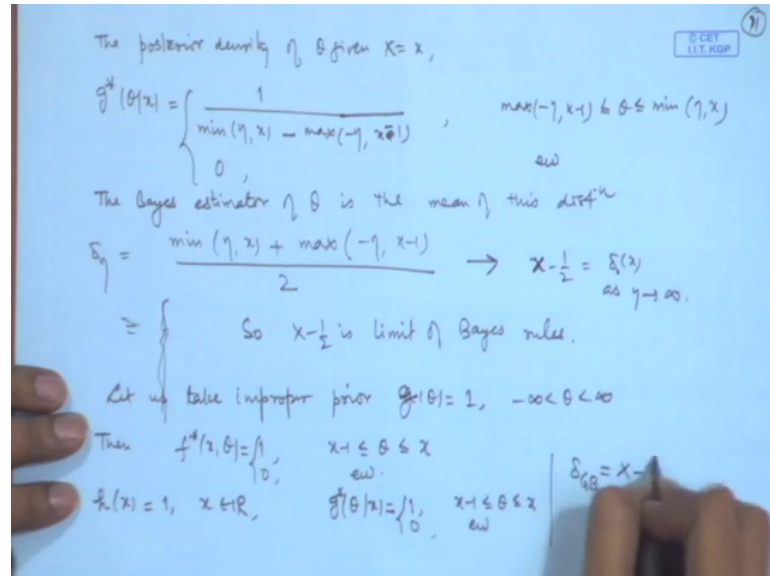 91
© CET
I.I.T. KGP
The posterior density of θ given X = x,
g*(θ|x) = { 1 / (min(η, x) − max(−η, x−1)) , max(−η, x−1) ≤ θ ≤ min(η, x)
0, ew
The Bayes estimator of θ is the mean of this distⁿ
δ_η = (min(η, x) + max(−η, x−1)) / 2 → x − 1/2 = δ(x)
as η→∞.
So x − 1/2 is limit of Bayes rules.
Let us take improper prior g(θ) = 1, −∞ < θ < ∞
Then f*(x, θ) = { 1, x−1 ≤ θ ≤ x
0, ew.
h(x) = 1, x ∈ ℝ, g*(θ|x) = { 1, x−1 ≤ θ ≤ x
0, ew
δ_GB = x −